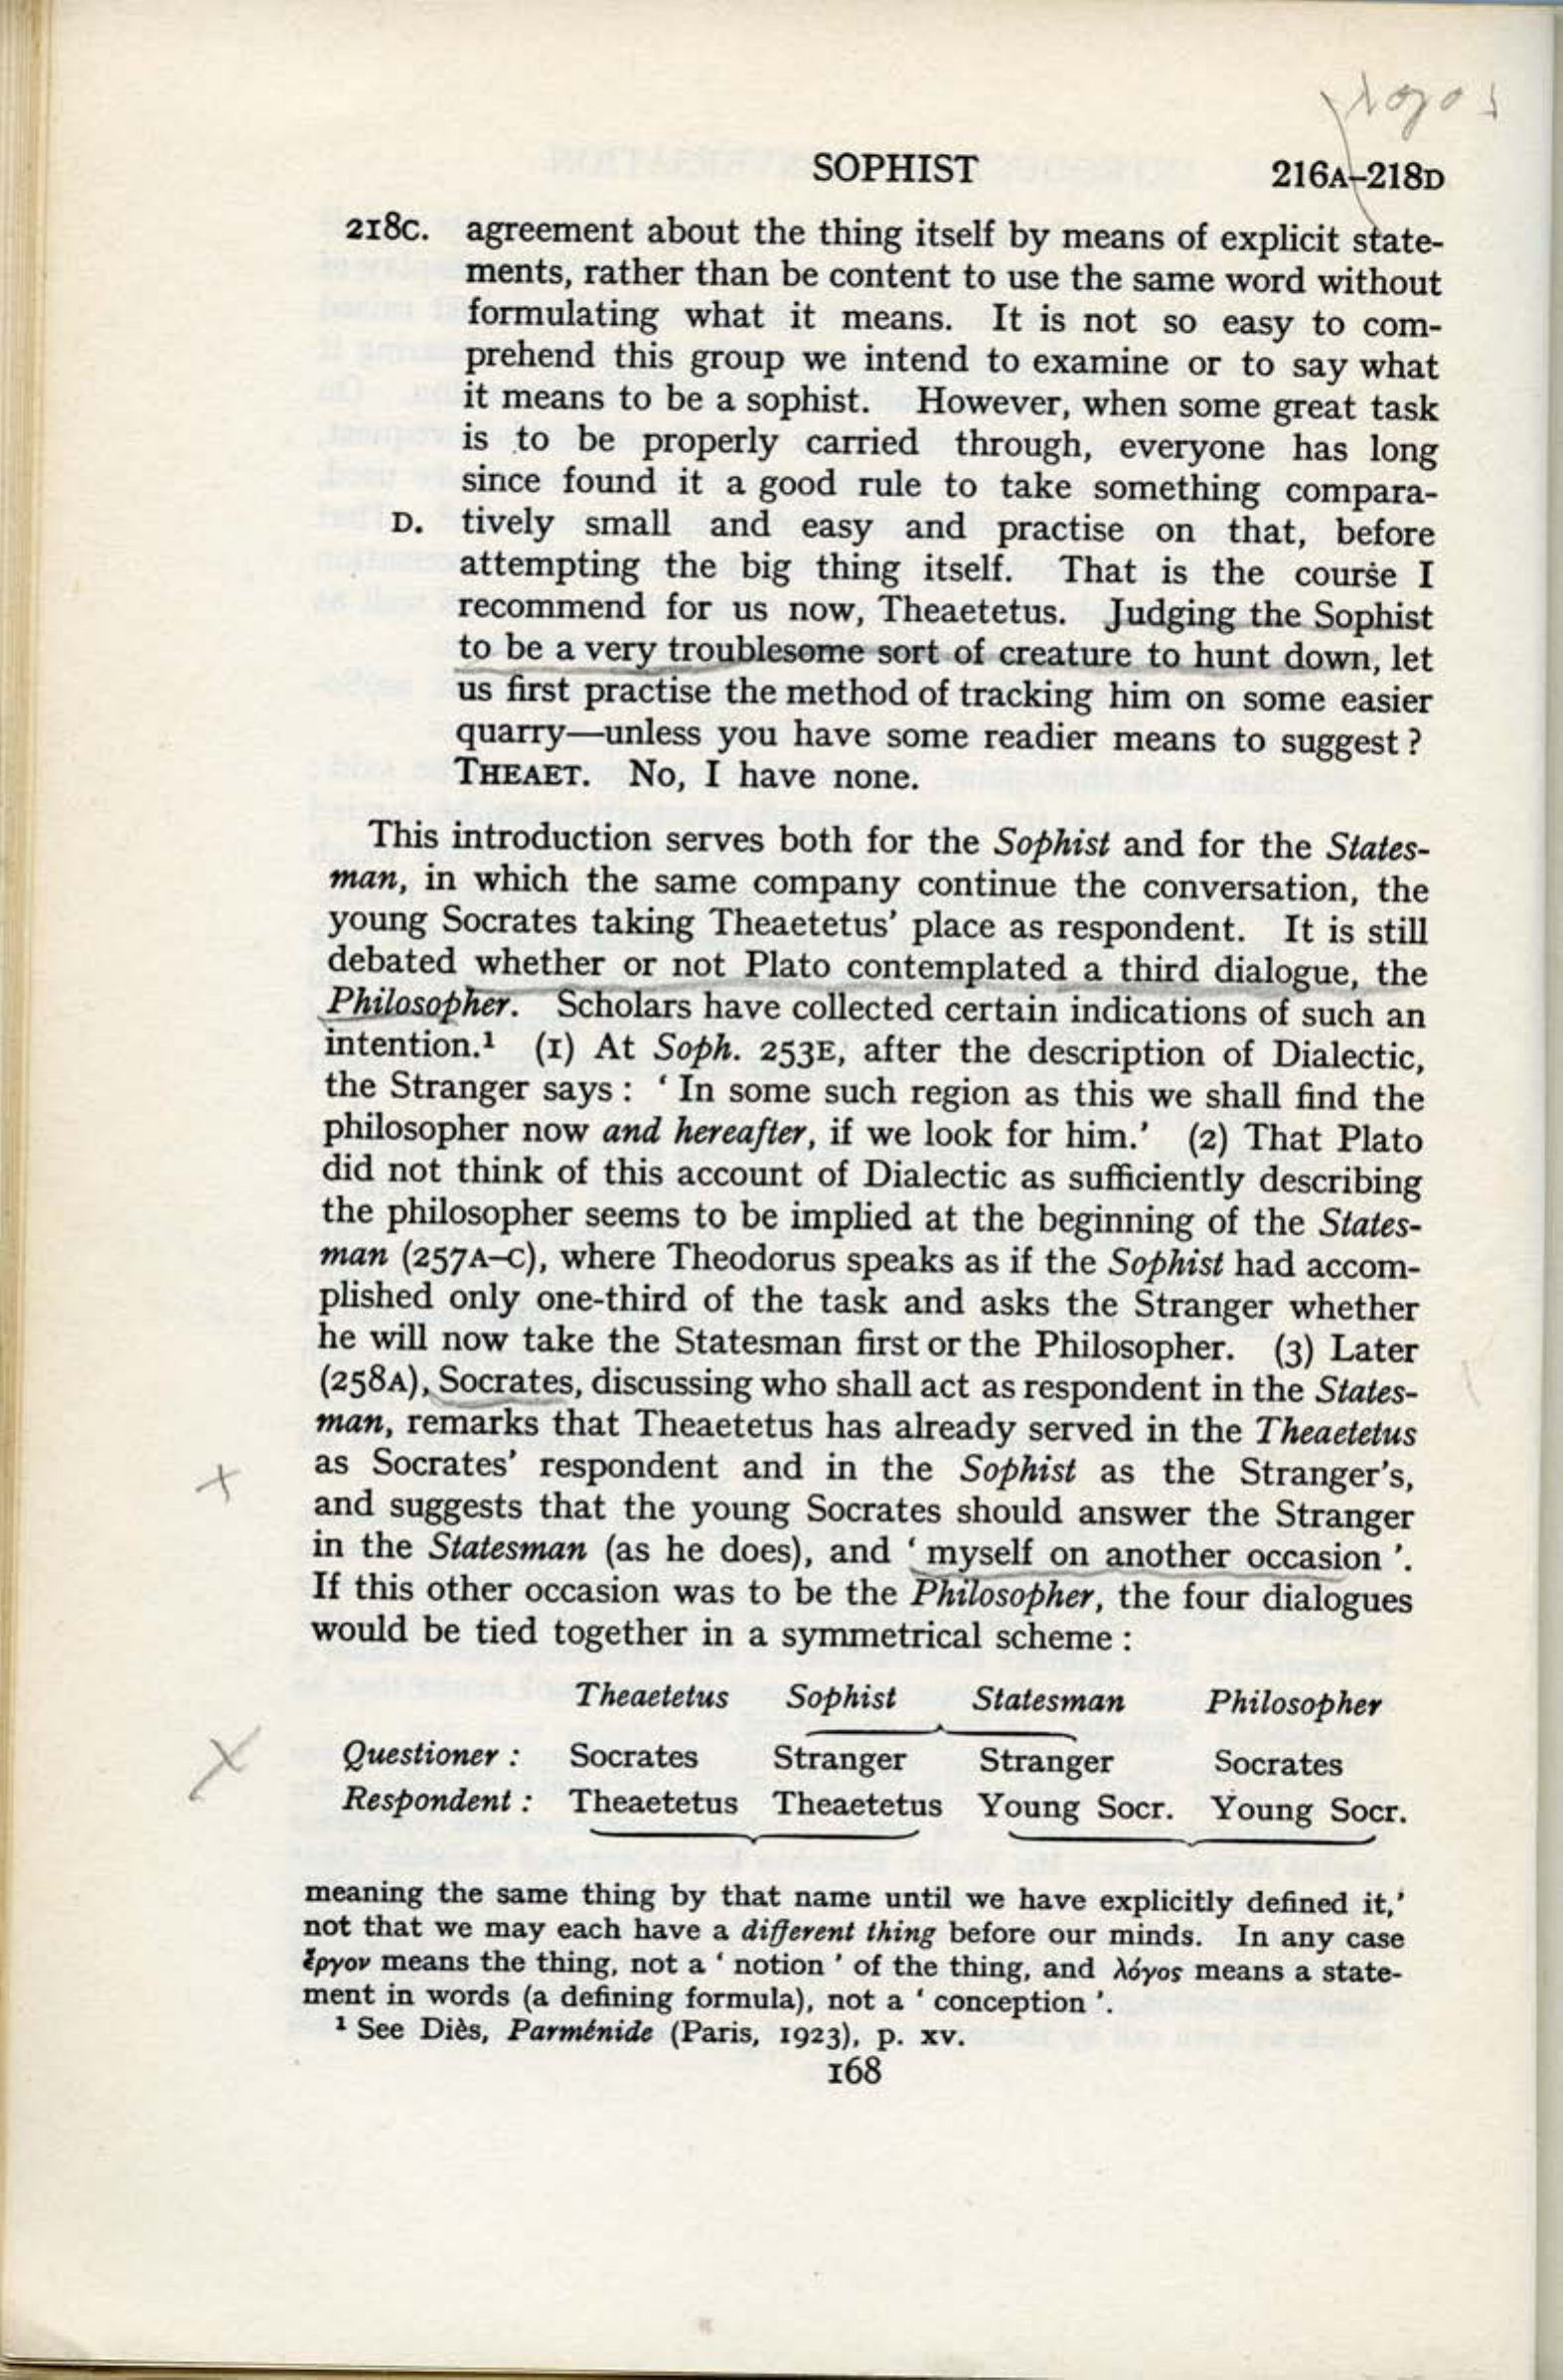 λογος
SOPHIST 216A–218D
218C. agreement about the thing itself by means of explicit state-
ments, rather than be content to use the same word without
formulating what it means. It is not so easy to com-
prehend this group we intend to examine or to say what
it means to be a sophist. However, when some great task
is to be properly carried through, everyone has long
since found it a good rule to take something compara-
D. tively small and easy and practise on that, before
attempting the big thing itself. That is the course I
recommend for us now, Theaetetus. Judging the Sophist
to be a very troublesome sort of creature to hunt down, let
us first practise the method of tracking him on some easier
quarry—unless you have some readier means to suggest?
THEAET. No, I have none.
This introduction serves both for the Sophist and for the States-
man, in which the same company continue the conversation, the
young Socrates taking Theaetetus’ place as respondent. It is still
debated whether or not Plato contemplated a third dialogue, the
Philosopher. Scholars have collected certain indications of such an
intention.¹ (1) At Soph. 253E, after the description of Dialectic,
the Stranger says: ‘In some such region as this we shall find the
philosopher now and hereafter, if we look for him.’ (2) That Plato
did not think of this account of Dialectic as sufficiently describing
the philosopher seems to be implied at the beginning of the States-
man (257A–C), where Theodorus speaks as if the Sophist had accom-
plished only one-third of the task and asks the Stranger whether
he will now take the Statesman first or the Philosopher. (3) Later
(258A), Socrates, discussing who shall act as respondent in the States-
man, remarks that Theaetetus has already served in the Theaetetus
as Socrates’ respondent and in the Sophist as the Stranger’s,
and suggests that the young Socrates should answer the Stranger
in the Statesman (as he does), and ‘myself on another occasion’.
If this other occasion was to be the Philosopher, the four dialogues
would be tied together in a symmetrical scheme:
Theaetetus Sophist Statesman Philosopher
Questioner: Socrates Stranger Stranger Socrates
Respondent: Theaetetus Theaetetus Young Socr. Young Socr.
meaning the same thing by that name until we have explicitly defined it,’
not that we may each have a different thing before our minds. In any case
ἔργον means the thing, not a ‘notion’ of the thing, and λόγος means a state-
ment in words (a defining formula), not a ‘conception’.
¹ See Diès, Parménide (Paris, 1923), p. xv.
168